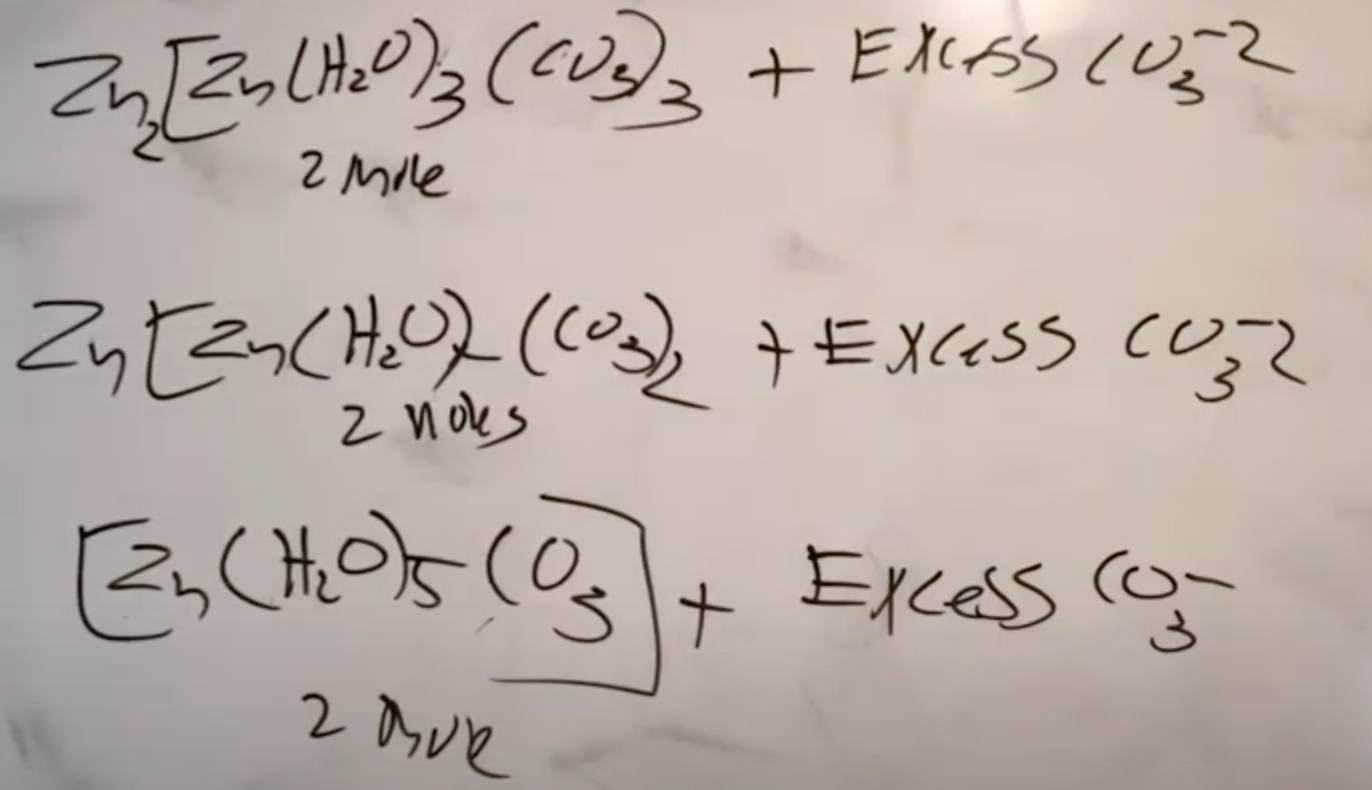 Zn₂[Zn(H₂O)₃(CO₃)₃ + Excess CO₃⁻²
2 mole
Zn[Zn(H₂O)₄(CO₃)₂ + Excess CO₃⁻²
2 moles
[Zn(H₂O)₅CO₃] + Excess CO₃⁻
2 mole